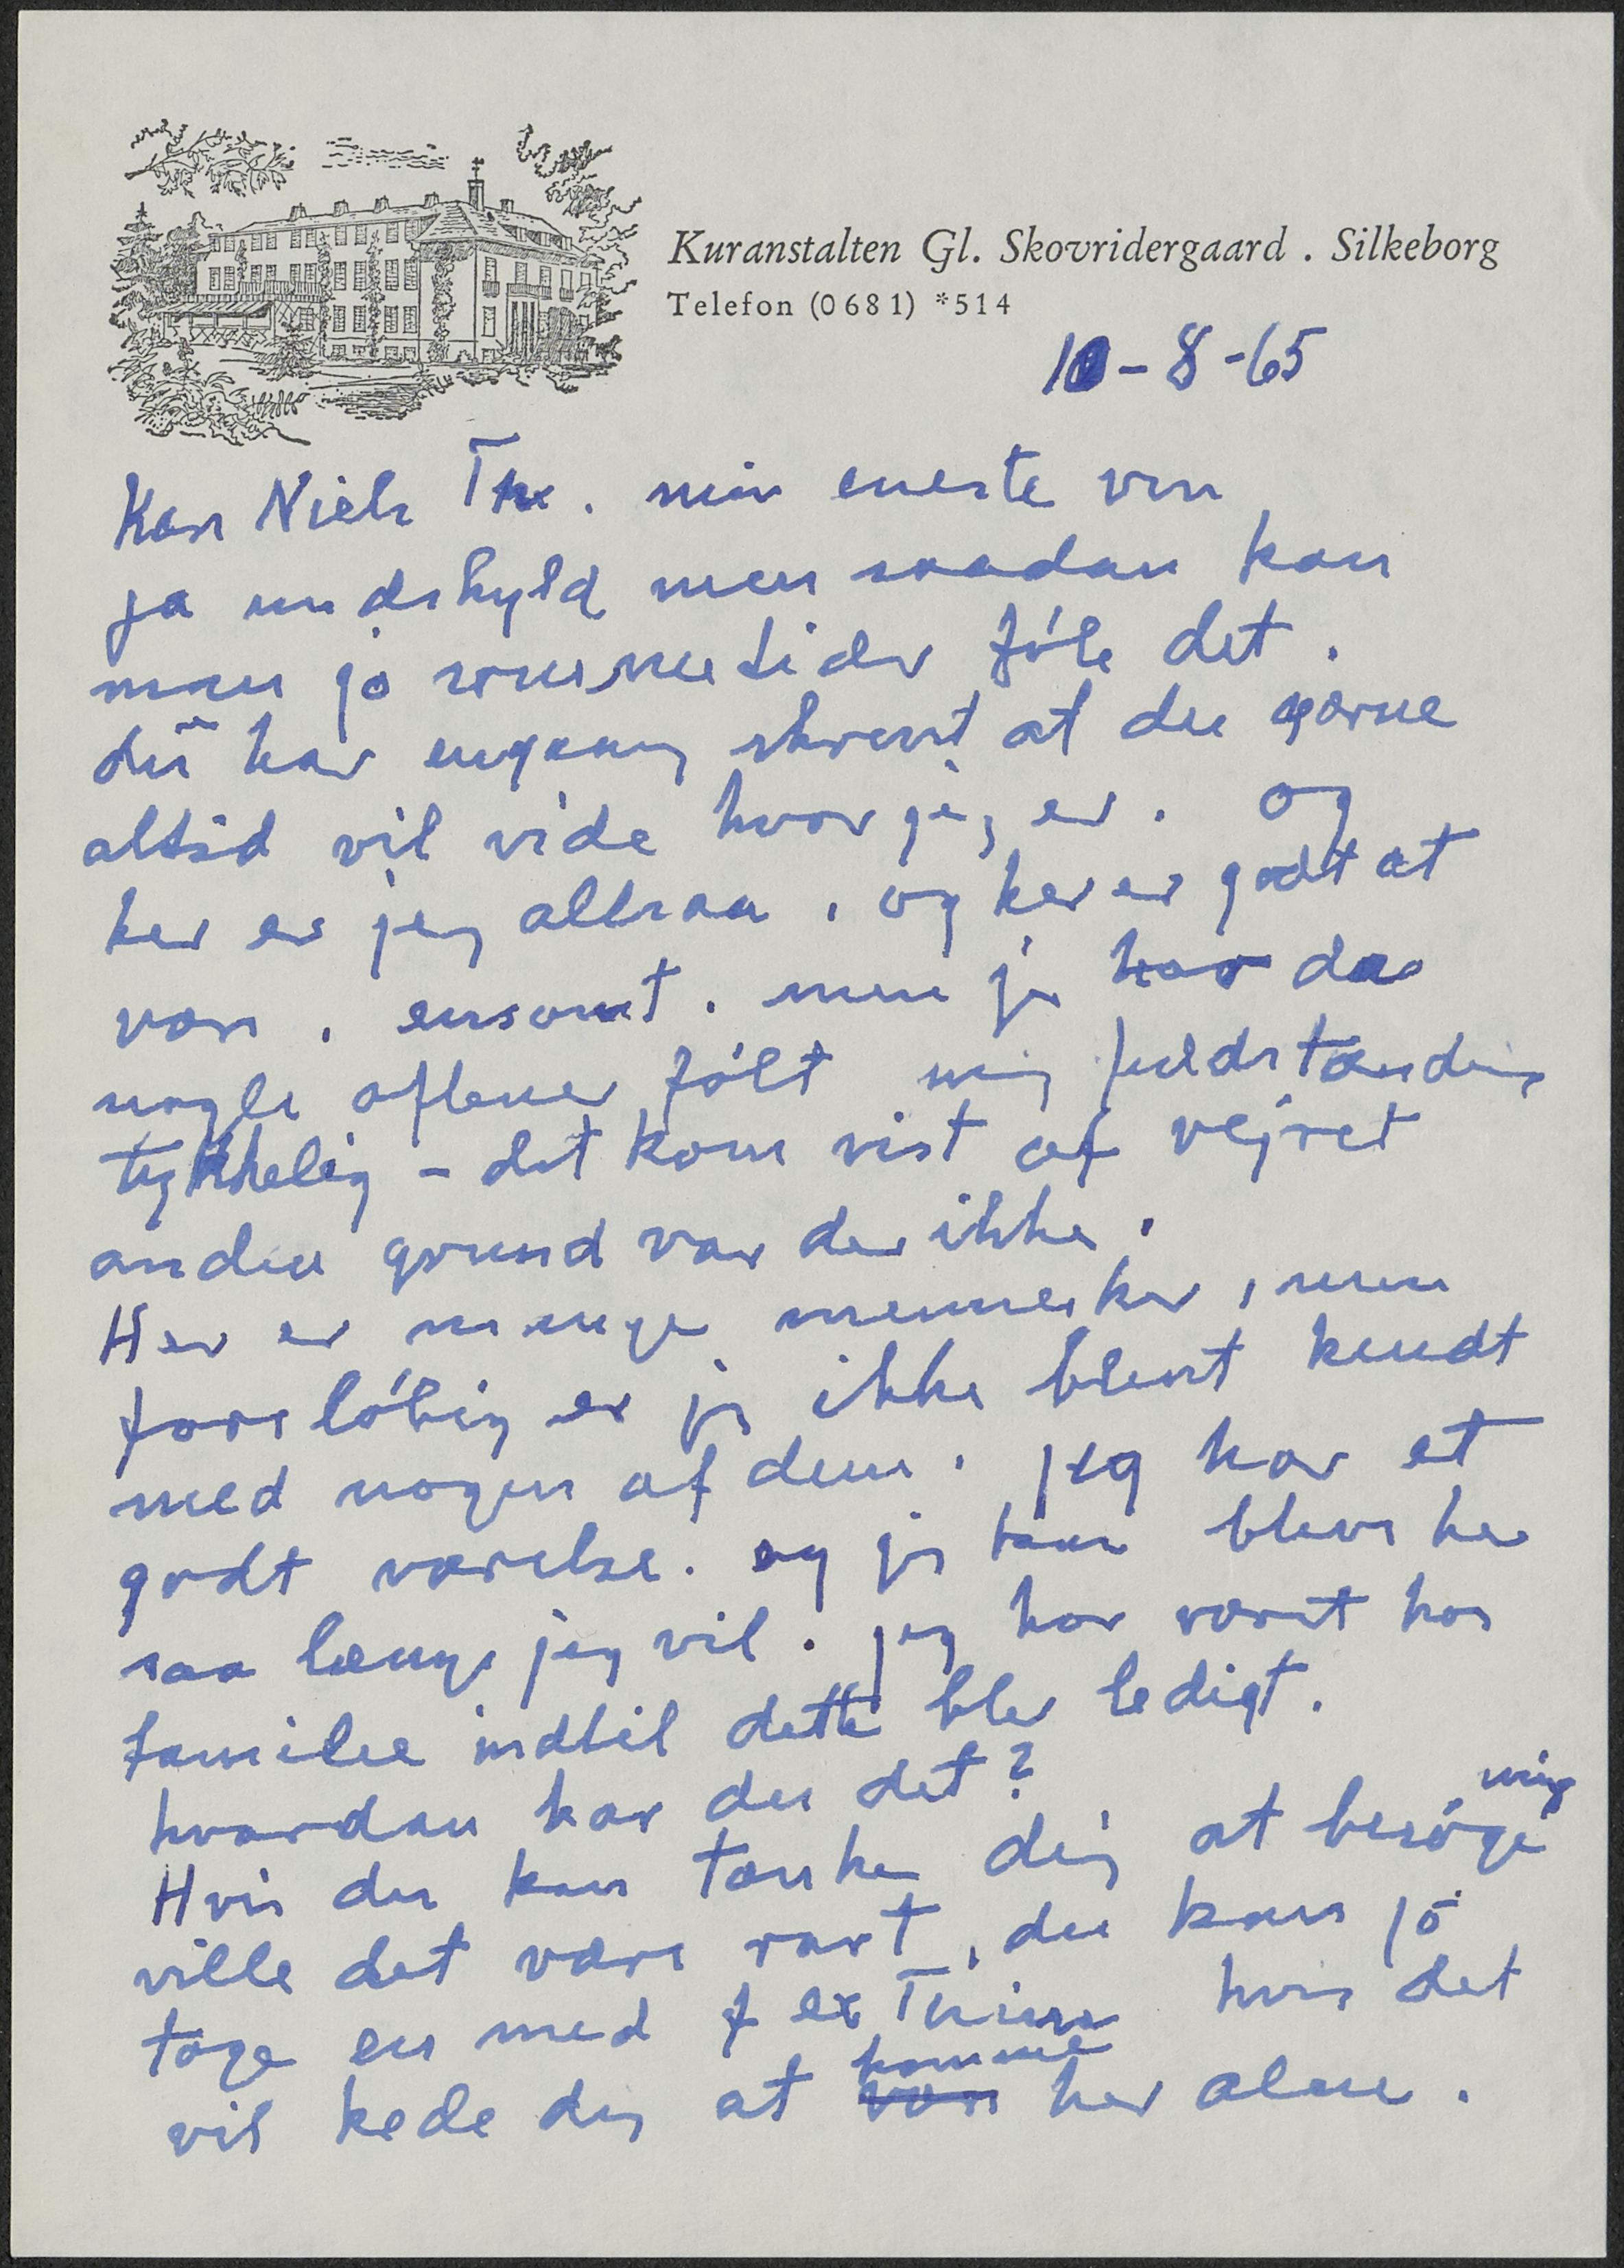 Kuranstalten Gl. Skovridergaard . Silkeborg
Telefon (0681) *514
10-8-65
Kære Niels Th. min eneste ven
ja undskyld men saadan kan
man jo sommetider föle det.
du har engang skrevet at du gærne
altid vil vide hvor jeg er. og
her er jeg altsaa, og her er godt at
være, ensomt. men jeg har da
nogle aftener fölt mig fuldstændig
lykkelig - det kom vist af vejret
anden grund var der ikke.
Her er mange mennesker, men
forelöbig er jeg ikke blevet kendt
med nogen af dem. jeg har et
godt værelse. og jeg kan blive her
saa længe jeg vil. jeg har været hos
familie indtil dette blev ledigt.
hvordan har du det?
Hvis du kan tænke dig at besöge mig
ville det være rart, du kan jo
tage en med f ex hvis det
vil kede dig at være komme her alene.